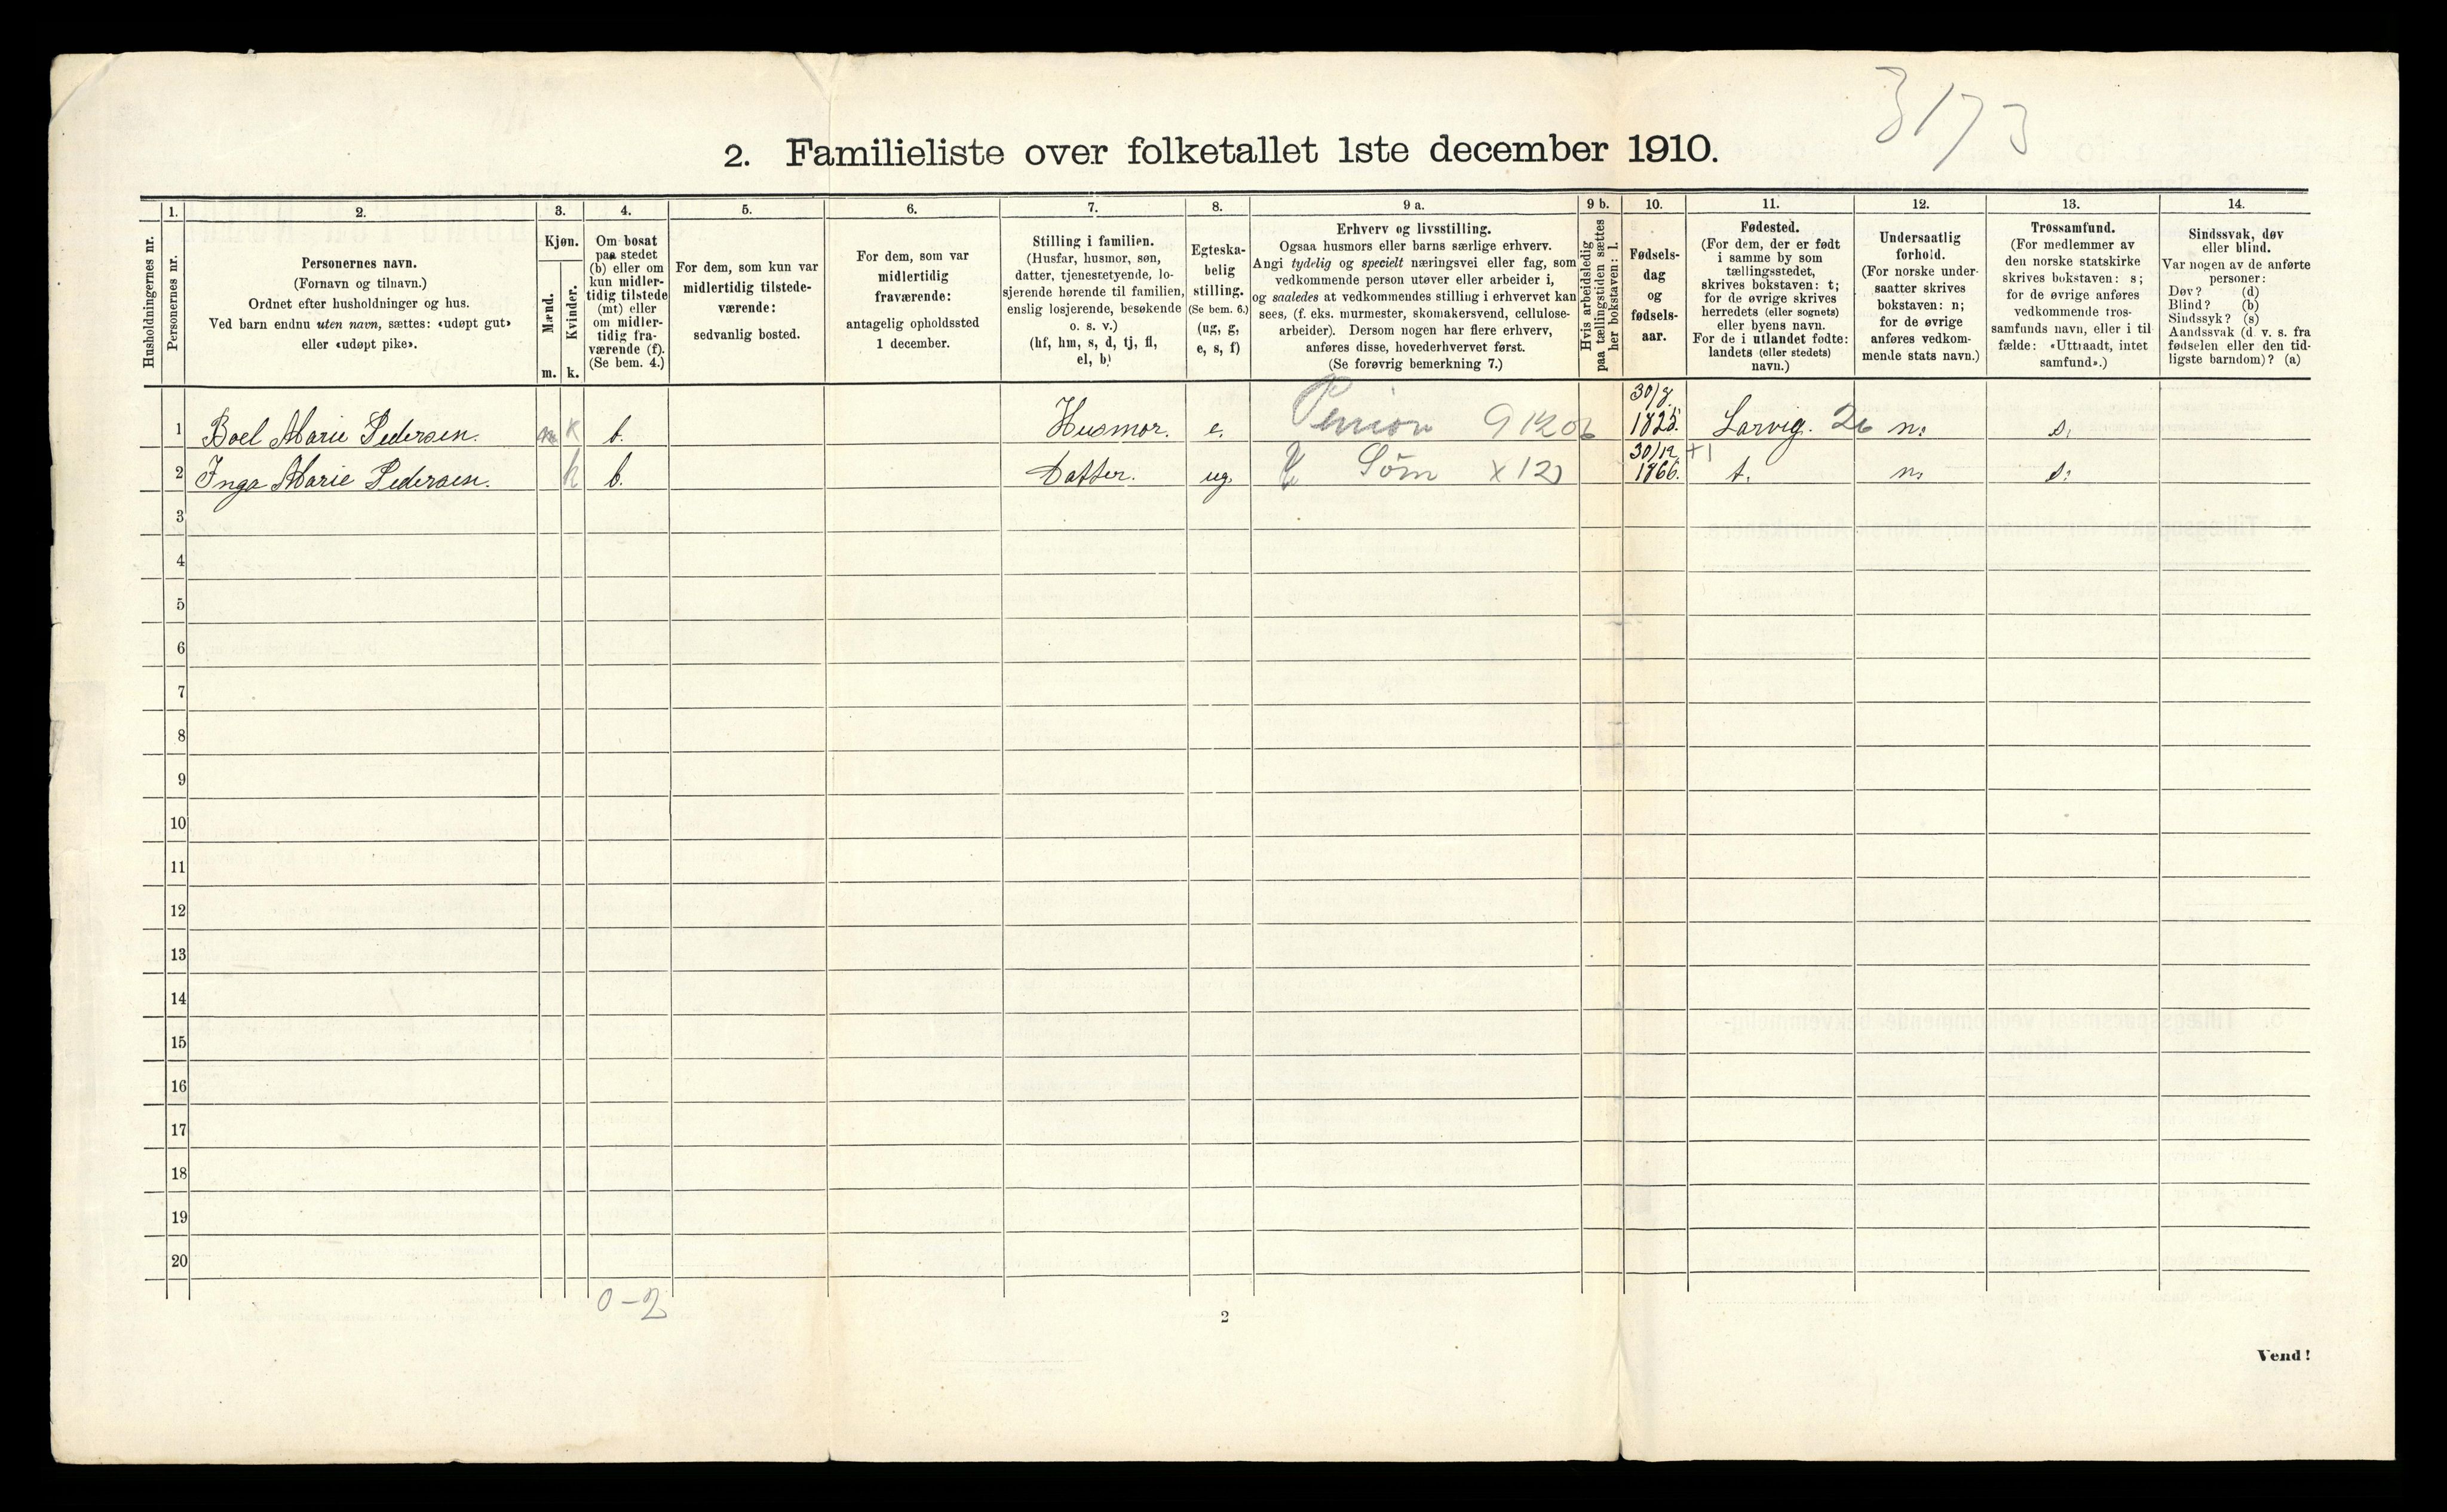 3173
2. Familieliste over folketallet 1ste december 1910.
Husholdningernes nr.
1.
Personernes nr.
2.
Personernes navn.
(Fornavn og tilnavn.)
Ordnet efter husholdninger og hus.
Ved barn endnu uten navn, sættes: «udøpt gut»
eller «udøpt pike».
3.
Kjøn.
Mænd.
Kvinder.
m.
k.
4.
Om bosat
paa stedet
(b) eller om
kun midler-
tidig tilstede
(mt) eller
om midler-
tidig fra-
værende (f).
(Se bem. 4.)
5.
For dem, som kun var
midlertidig tilstede-
værende:
sedvanlig bosted.
6.
For dem, som var
midlertidig
fraværende:
antagelig opholdssted
1 december.
7.
Stilling i familien.
(Husfar, husmor, søn,
datter, tjenestetyende, lo-
sjerende hørende til familien,
enslig losjerende, besøkende
o. s. v.)
(hf, hm, s, d, tj, fl,
el, b)
8.
Egteska-
belig
stilling.
(Se bem. 6.)
(ug, g,
e, s, f)
9 a.
Erhverv og livsstilling.
Ogsaa husmors eller barns særlige erhverv.
Angi tydelig og specielt næringsvei eller fag, som
vedkommende person utøver eller arbeider i,
og saaledes at vedkommendes stilling i erhvervet kan
sees, (f. eks. murmester, skomakersvend, cellulose-
arbeider). Dersom nogen har flere erhverv,
anføres disse, hovederhvervet først.
(Se forøvrig bemerkning 7.)
9 b.
Hvis arbeidsledig
paa tællingstiden sættes
her bokstaven: l.
10.
Fødsels-
dag
og
fødsels-
aar.
11.
Fødested.
(For dem, der er født
i samme by som
tællingsstedet,
skrives bokstaven: t;
for de øvrige skrives
herredets (eller sognets)
eller byens navn.
For de i utlandet fødte:
landets (eller stedets)
navn.)
12.
Undersaatlig
forhold.
(For norske under-
saatter skrives
bokstaven: n;
for de øvrige
anføres vedkom-
mende stats navn.)
13.
Trossamfund.
(For medlemmer av
den norske statskirke
skrives bokstaven: s;
for de øvrige anføres
vedkommende tros-
samfunds navn, eller i til-
fælde: «Uttraadt, intet
samfund».)
14.
Sindssvak, døv
eller blind.
Var nogen av de anførte
personer:
Døv? (d)
Blind? (b)
Sindssyk? (s)
Aandssvak (d. v. s. fra
fødselen eller den tid-
ligste barndom)? (a)
1 Boel Marie Pedersen. m k b. Husmor. e. Pension 30/7. 1825. Larvig. 26 n. s.
2 Inga Marie Pedersen. k b. Datter. ug. Søm x 12) 30/12 +1 1866. t. n. s.
3
4
5
6
7
8
9
10
11
12
13
14
15
16
17
18
19
20
0-2
2
Vend!